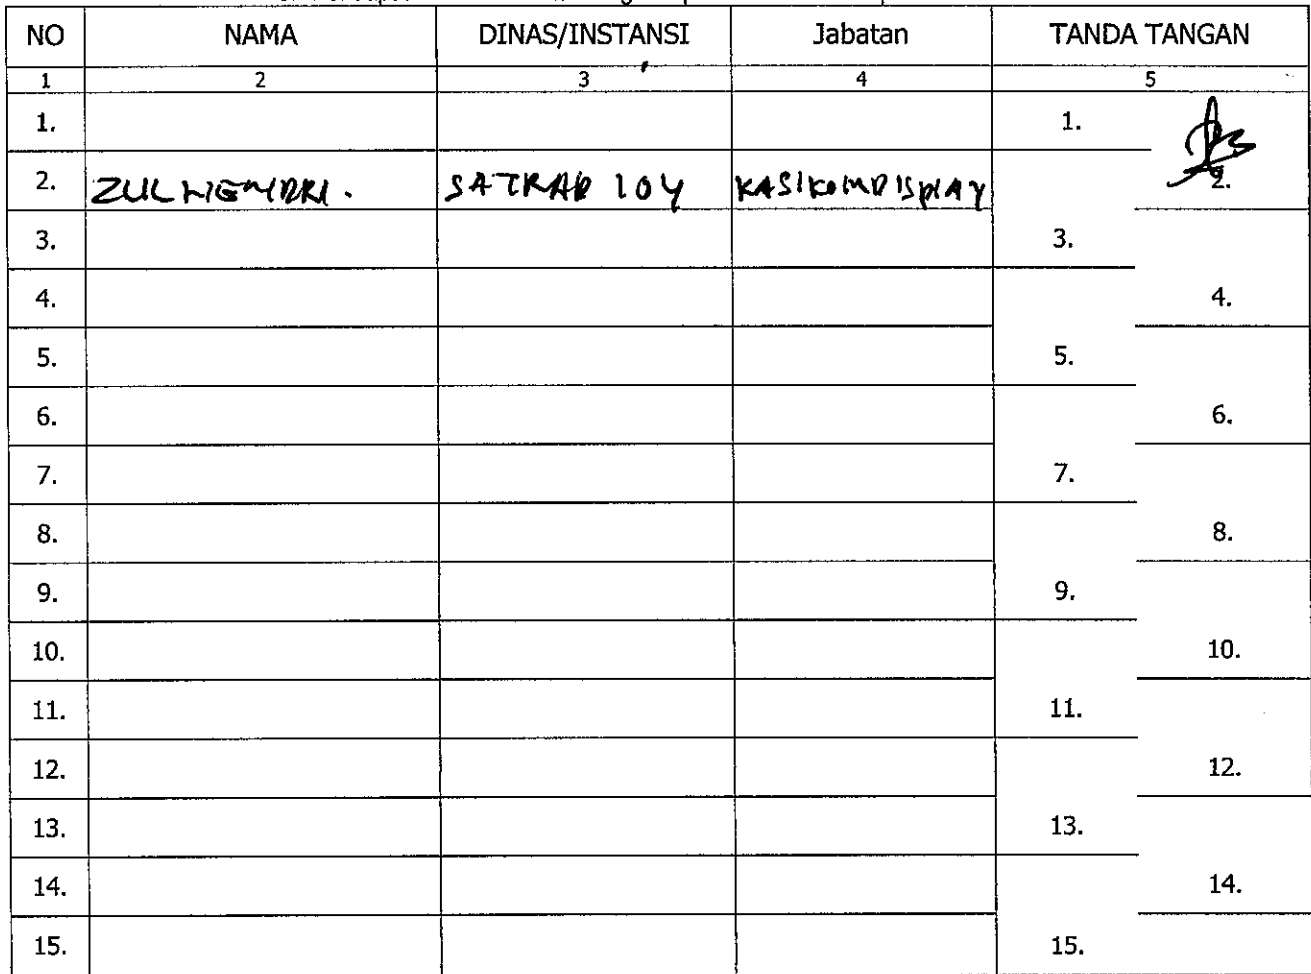 NO NAMA DINAS/INSTANSI Jabatan TANDA TANGAN
1 2 3 4 5
1. 1.
2. ZULHENDRI. SATRAD 104 KASIKOMDISPLAY 2.
3. 3.
4. 4.
5. 5.
6. 6.
7. 7.
8. 8.
9. 9.
10. 10.
11. 11.
12. 12.
13. 13.
14. 14.
15. 15.